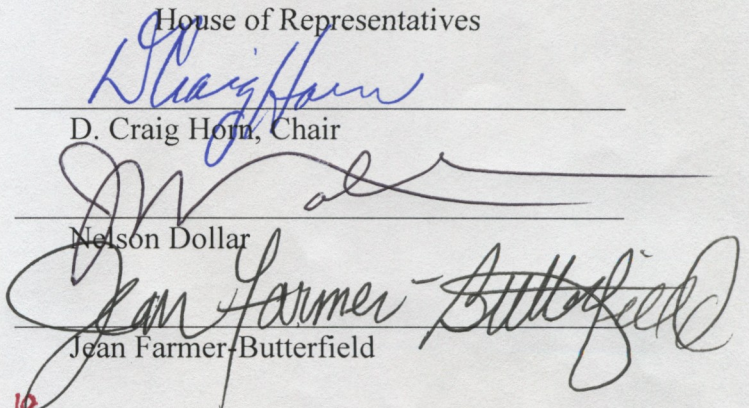 House of Representatives
D Craig Horn
D. Craig Horn, Chair
Nelson Dollar
Jean Farmer-Butterfield
Jean Farmer-Butterfield